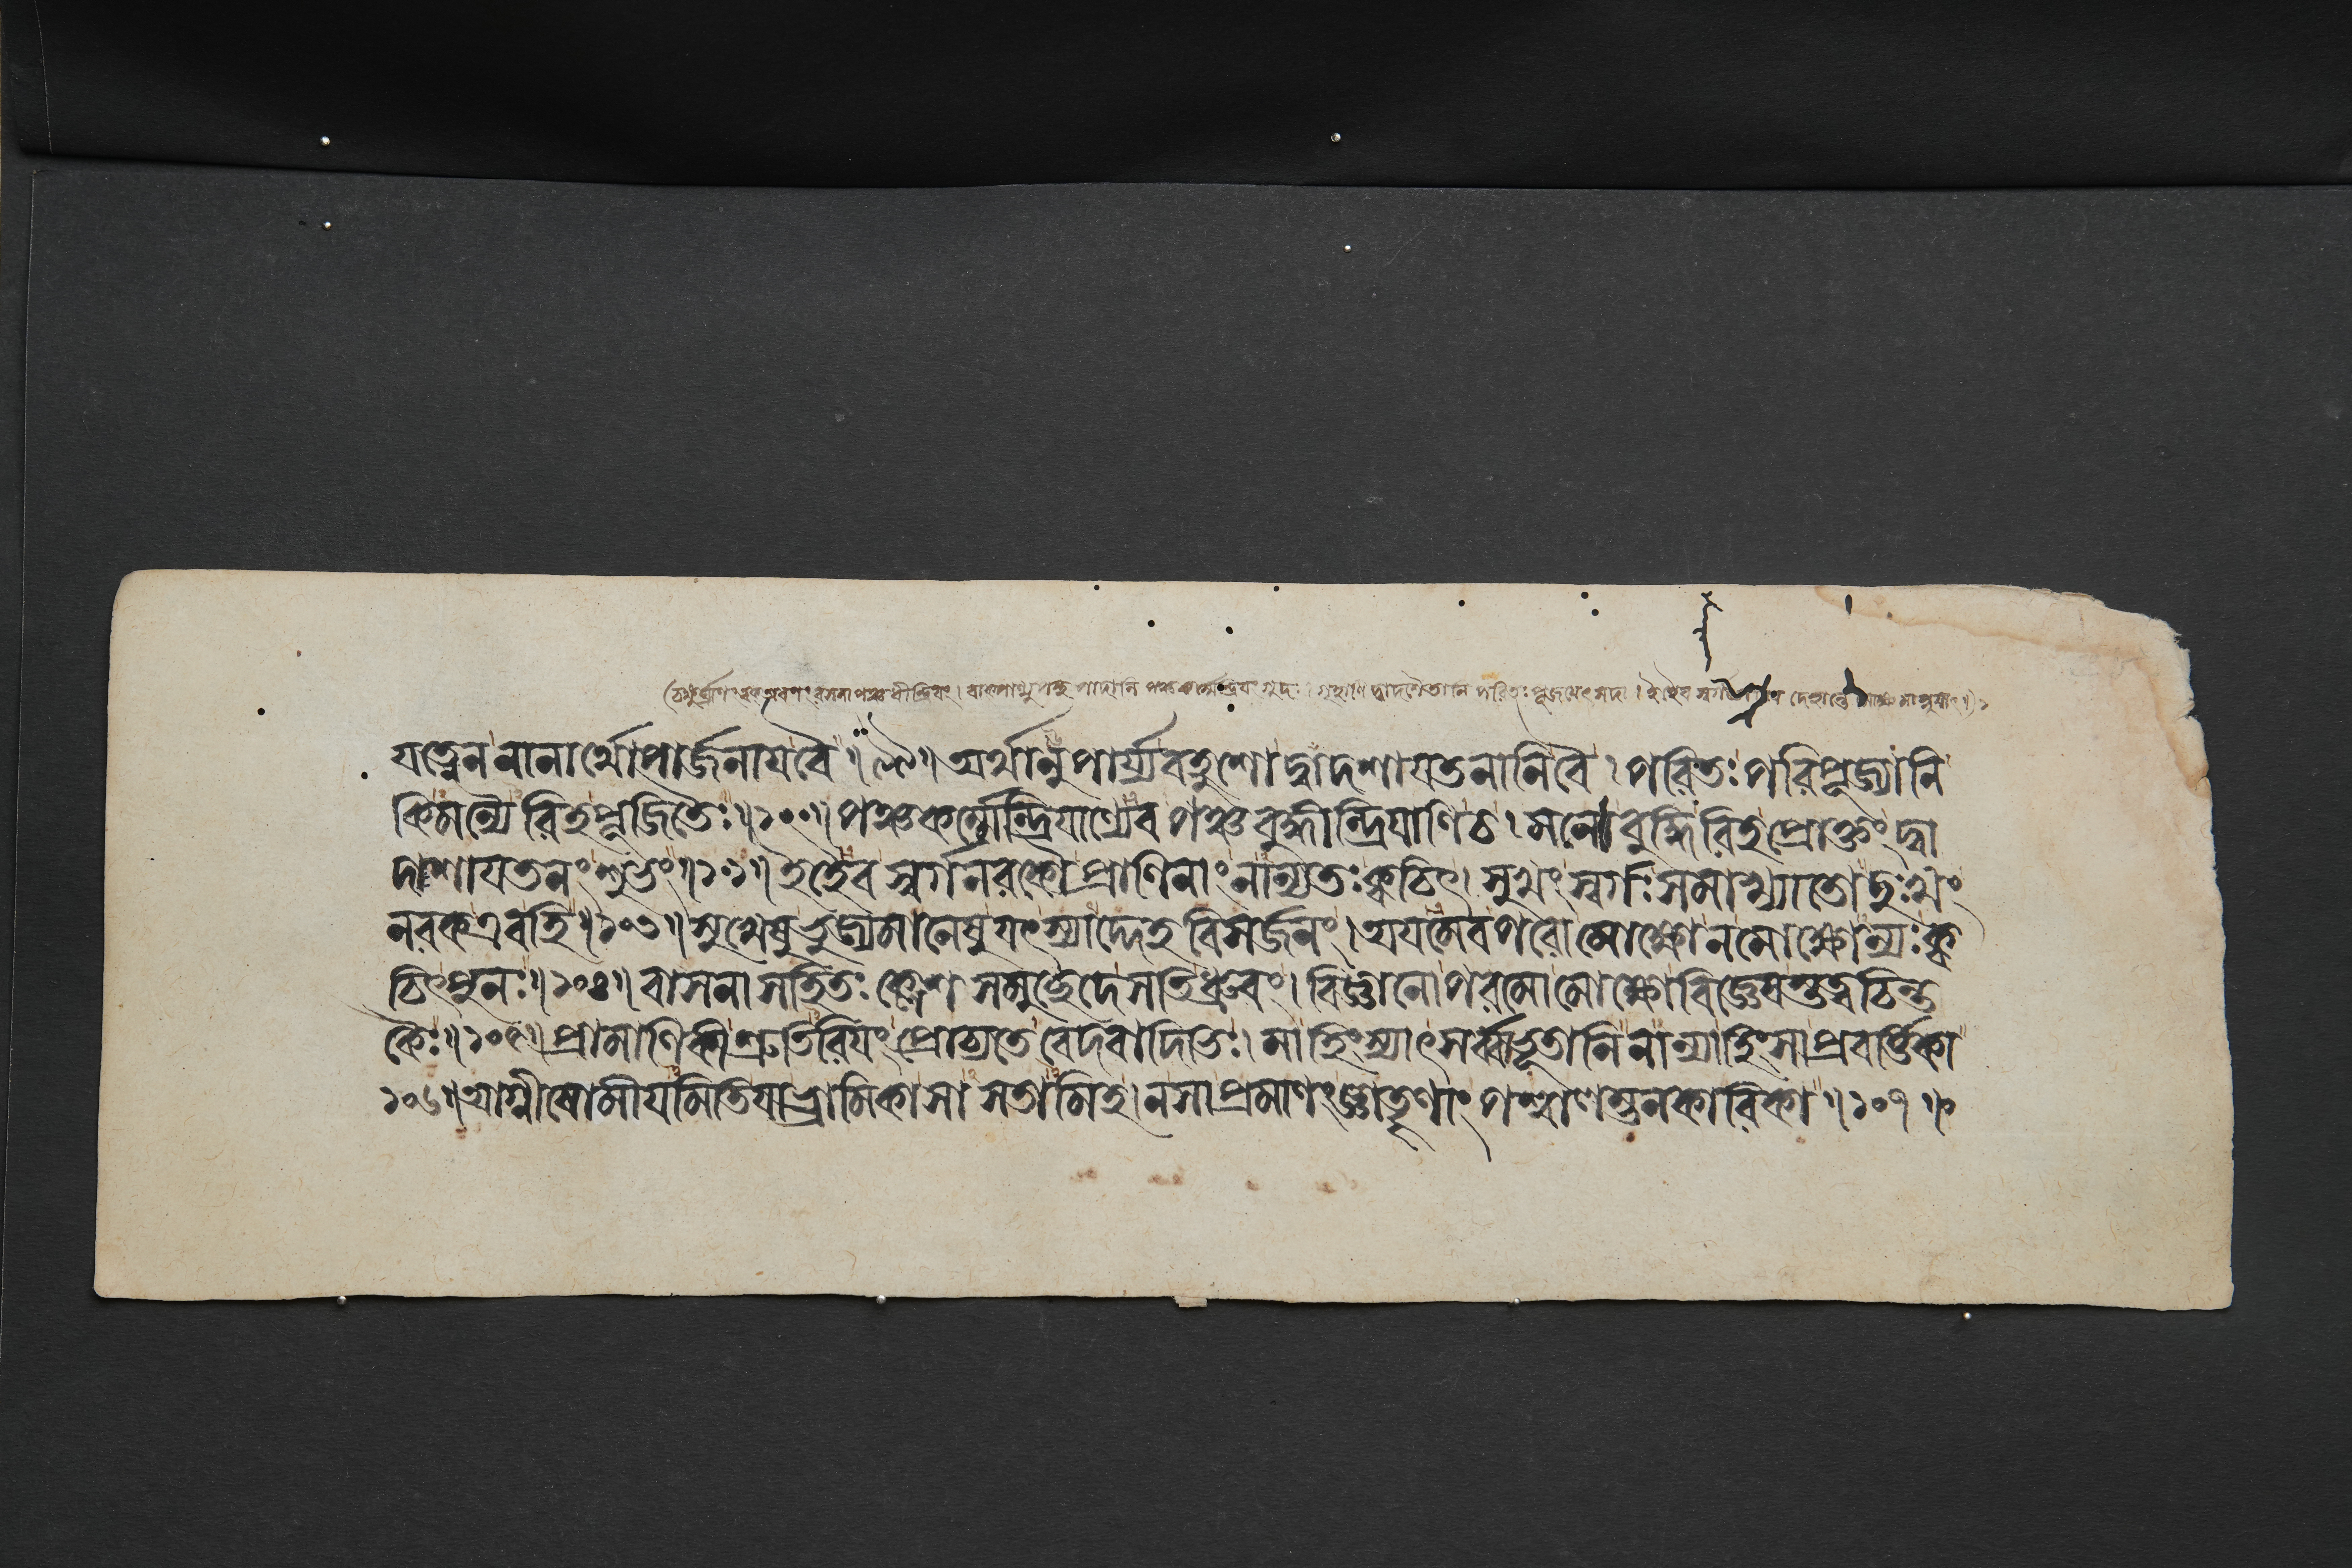 রসনা পঞ্চ ধীন্দ্রিযং। দ্বাদশৈতানি পরিতঃ পূজযেৎ সদা। দেহান্তে
যত্নেন নানার্থোপার্জনাযবৈ॥৯৯॥ অর্থানুপার্য্যবহুশো দ্বাদশাযতনানিবৈ। পরিতঃ পরিপূজ্যানি
কিমন্যৈ রিহপূজিতৈঃ॥১০১॥ পঞ্চকর্ম্মেন্দ্রিযাণ্যেব পঞ্চ বুদ্ধীন্দ্রিযাণিচ। মনো বুদ্ধিরিহপ্রোক্তং দ্বা
দাশাযতনং শুভং॥১০২॥ ইহৈব স্বর্গনরকৌ প্রাণিনাং নান্যতঃ ক্বচিৎ। সুখং স্বর্গঃ সমাখ্যাতো দুঃখং
নরকএবহি॥১০৩॥ সুখেষু ভুজ্যমানেষু যৎস্যাদ্দেহ বিসর্জনং। অযমেবপরো মোক্ষোনমোক্ষোন্যঃ ক্ব
চিৎপুনঃ॥১০৪॥ বাসনা সহিতঃ ক্লেশ সমুচ্ছেদে সতিধ্রুবং। বিজ্ঞানোপরমো মোক্ষোবিজ্ঞেযস্তত্বচিন্ত
কৈঃ॥১০৫॥ প্রামাণিকীশ্রুতিরিযং প্রোচ্যতে বেদবাদিভিঃ। মাহিংস্যাৎসর্ব্বভূতানি নান্যাহিংসাপ্রবর্ত্তিকা
১০৬॥ অগ্নীষোমীযমিতিযাভ্রামিকাসা সতামিহ। নসাপ্রমাণং জ্ঞাতৄণাং পশ্বালম্ভনকারিকা॥১০৭॥